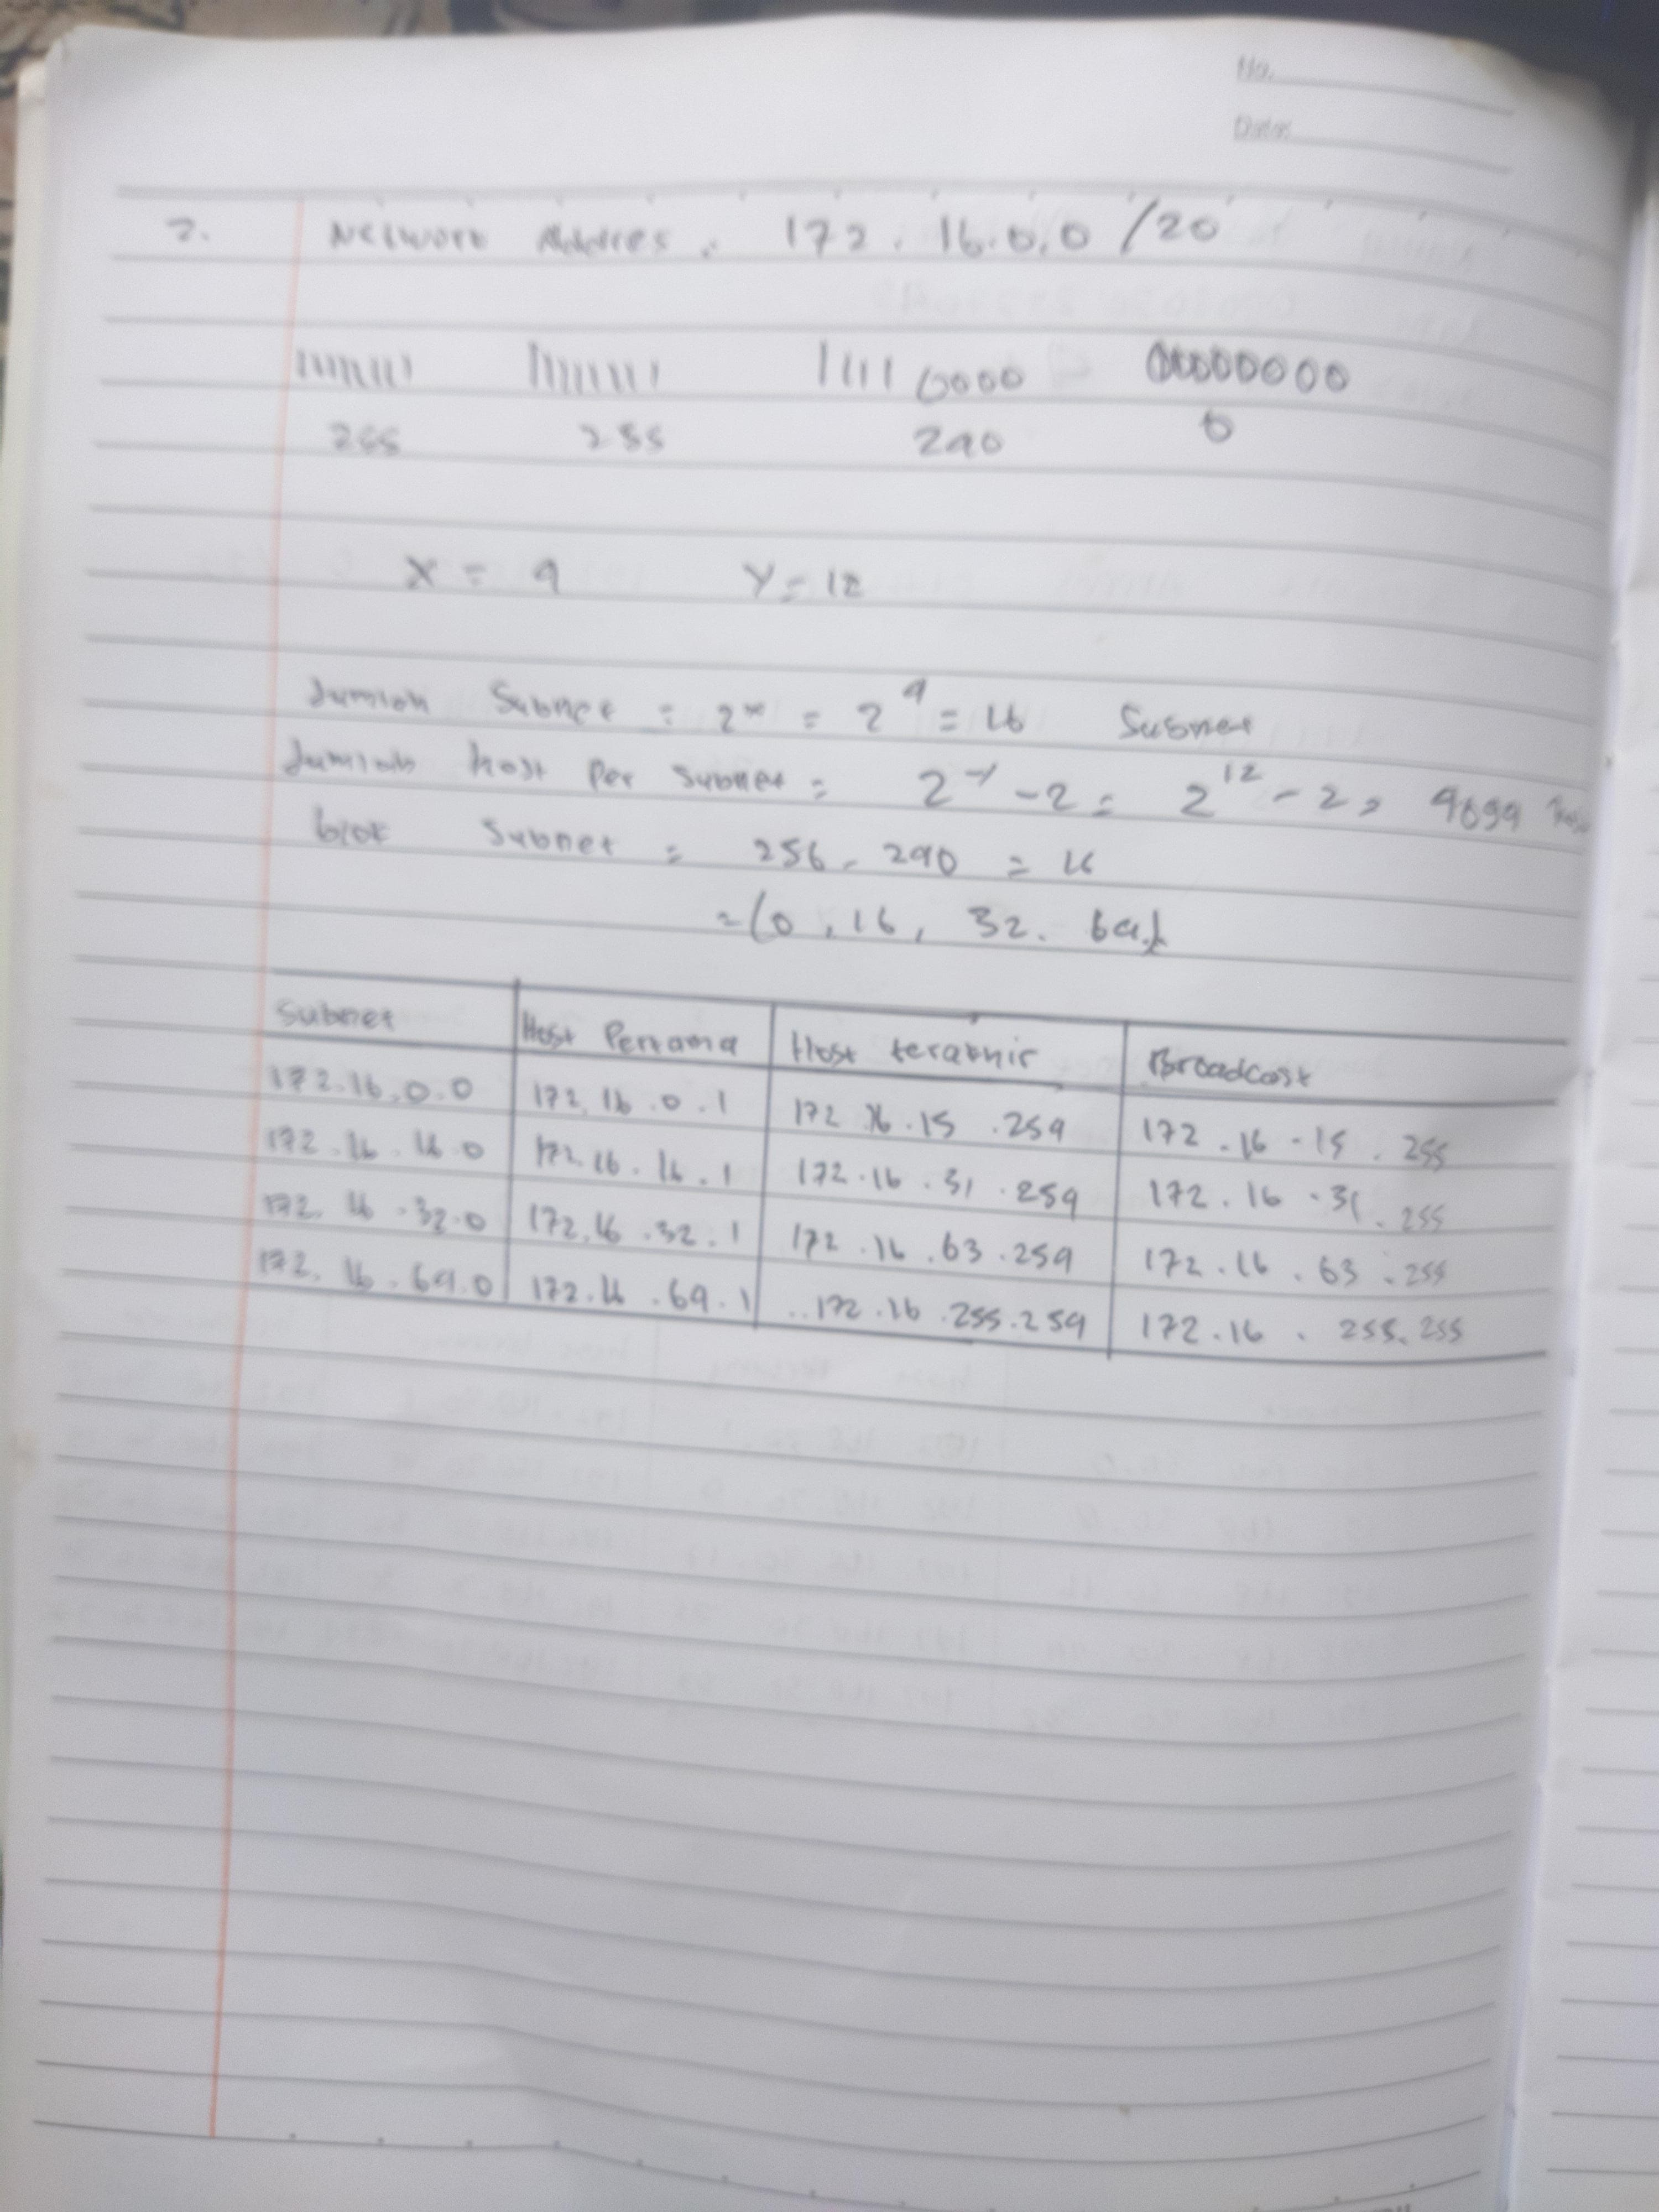 No.
Date:
2. Network Addres . 172 . 16.0.0 /20
11111111 11111111 11110000 00000000
255 255 240 0
X = 4 Y = 12
Jumlah Subnet = 2ˣ = 2⁴ = 16 Subnet
Jumlah host Per Subnet = 2ʸ - 2 = 2¹² - 2 = 4094 host
blok Subnet = 256 - 240 = 16
= (0, 16, 32. 64.)
Subnet Host Pertama Host terakhir Broadcast
172.16.0.0 172.16.0.1 172.16.15.254 172.16.15.255
172.16.16.0 172.16.16.1 172.16.31.254 172.16.31.255
172.16.32.0 172.16.32.1 172.16.63.254 172.16.63.255
172.16.64.0 172.16.64.1 172.16.255.254 172.16.255.255